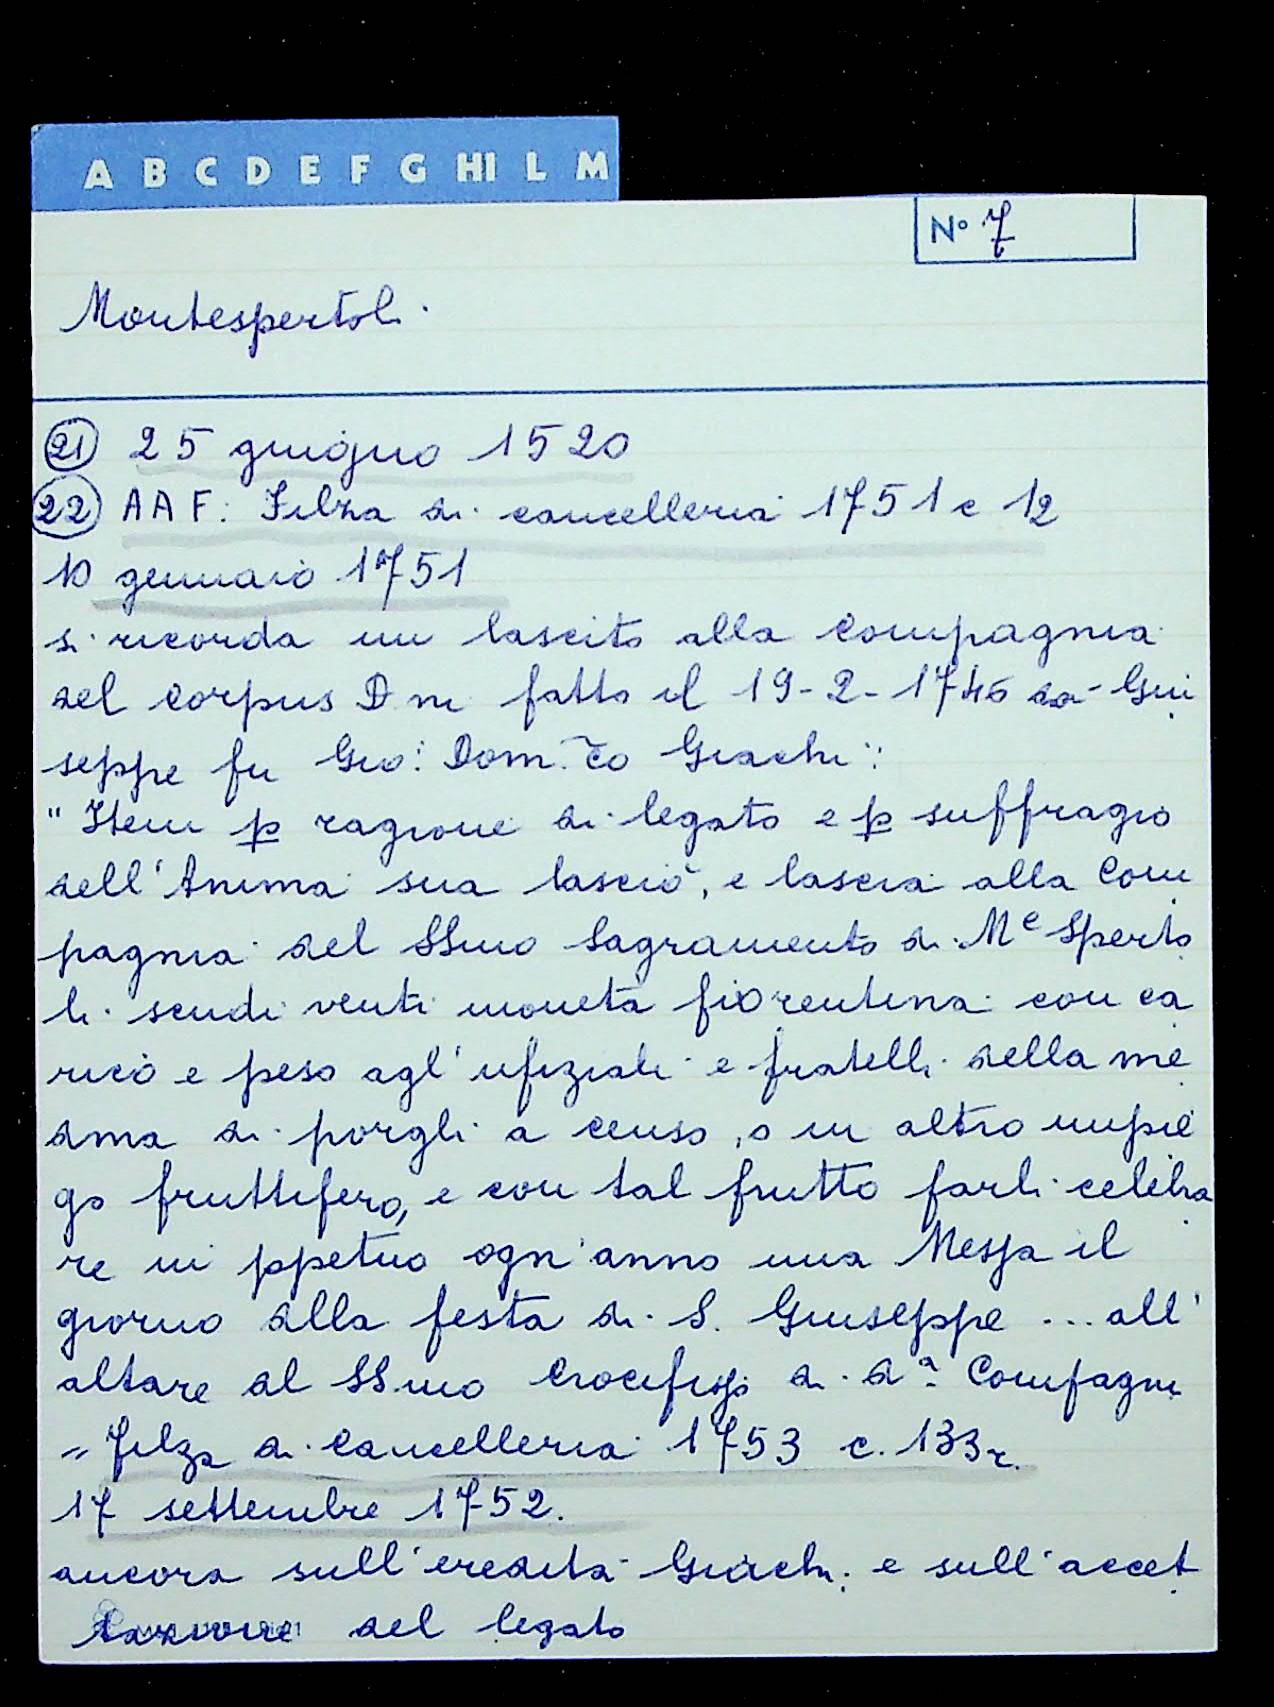 A B C D E F G HI L M
N° 7
Montespertoli
21 25 giugno 1520
22 AAF: Filza di cancelleria 1751 c 12
10 gennaio 1751
si ricorda un lascito alla compagnia
del Corpus Dni fatto il 19-2-1746 da Giu
seppe fu Gio: Dom.co Giachi:
"Item p ragione di legato e p suffragio
dell'Anima sua lasciò, e lascia alla Com
pagnia del SSmo Sagramento di Me Sperto
li scudi venti moneta fiorentina con ca
rico e peso agl'ufiziali e fratelli della me
dma di porgli a censo, o in altro impie
go fruttifero, e con tal frutto farli celebra
re in ppetuo ogn'anno una Messa il
giorno dlla festa di S. Giuseppe ... all'
altare dl SSmo Crocifisso di da Compagni
" Filza di Cancelleria 1753 c. 133r.
17 settembre 1752.
ancora sull'eredità Giachi e sull'accet
tazione del legato